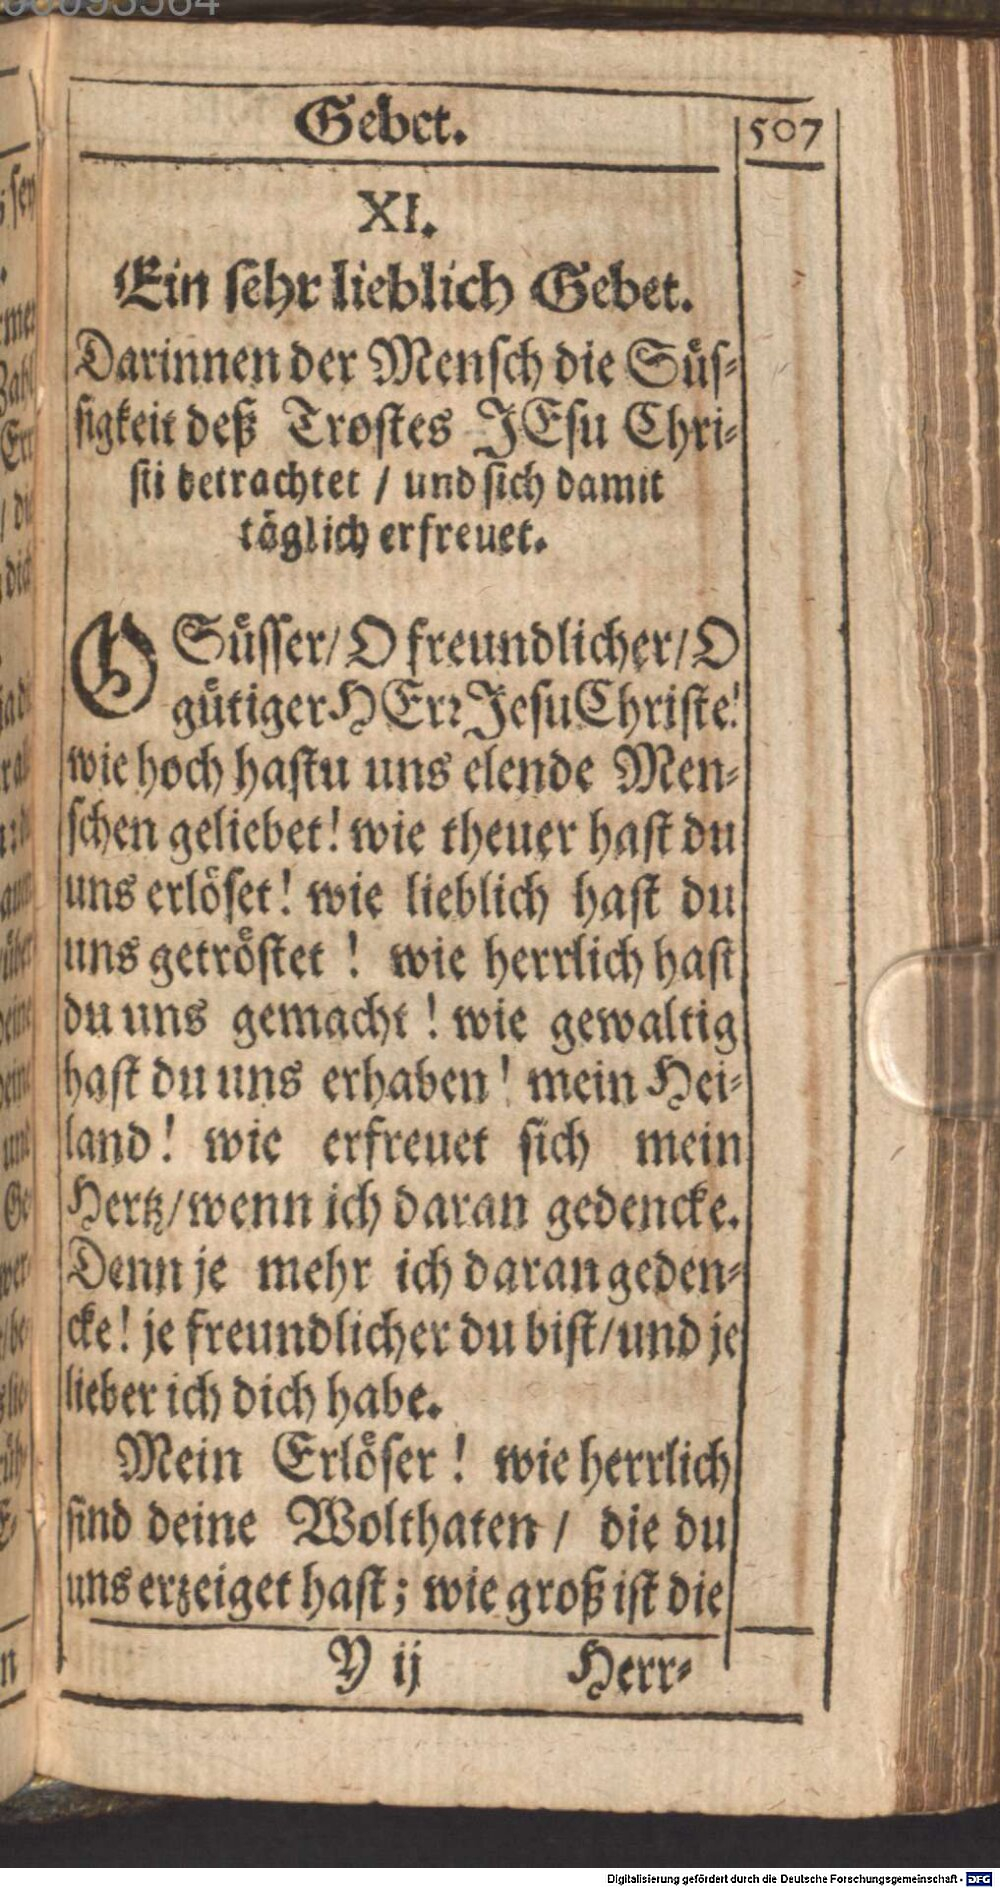 Gebet.
507
XI.
Ein sehr lieblich Gebet.
Darinnen der Mensch die Süs-
sigkeit deß Trostes JEsu Chri-
sti betrachtet / und sich damit
täglich erfreuet.
O Süsser/ O freundlicher/ O
gütiger HErr Jesu Christe!
wie hoch hastu uns elende Men-
schen geliebet! wie theuer hast du
uns erlöset! wie lieblich hast du
uns getröstet ! wie herrlich hast
du uns gemacht ! wie gewaltig
hast du uns erhaben! mein Hei-
land! wie erfreuet sich mein
Hertz/ wenn ich daran gedencke.
Denn je mehr ich daran geden-
cke! je freundlicher du bist/ und je
lieber ich dich habe.
Mein Erlöser ! wie herrlich
sind deine Wolthaten / die du
uns erzeiget hast; wie groß ist die
Y ij
Herr-
Digitalisierung gefördert durch die Deutsche Forschungsgemeinschaft - DFG